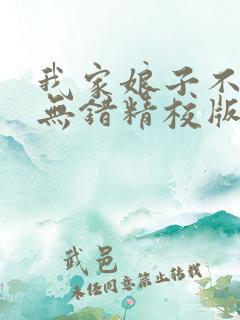 我家娘子不
無錯精校版
武邑
未經同意禁止轉載